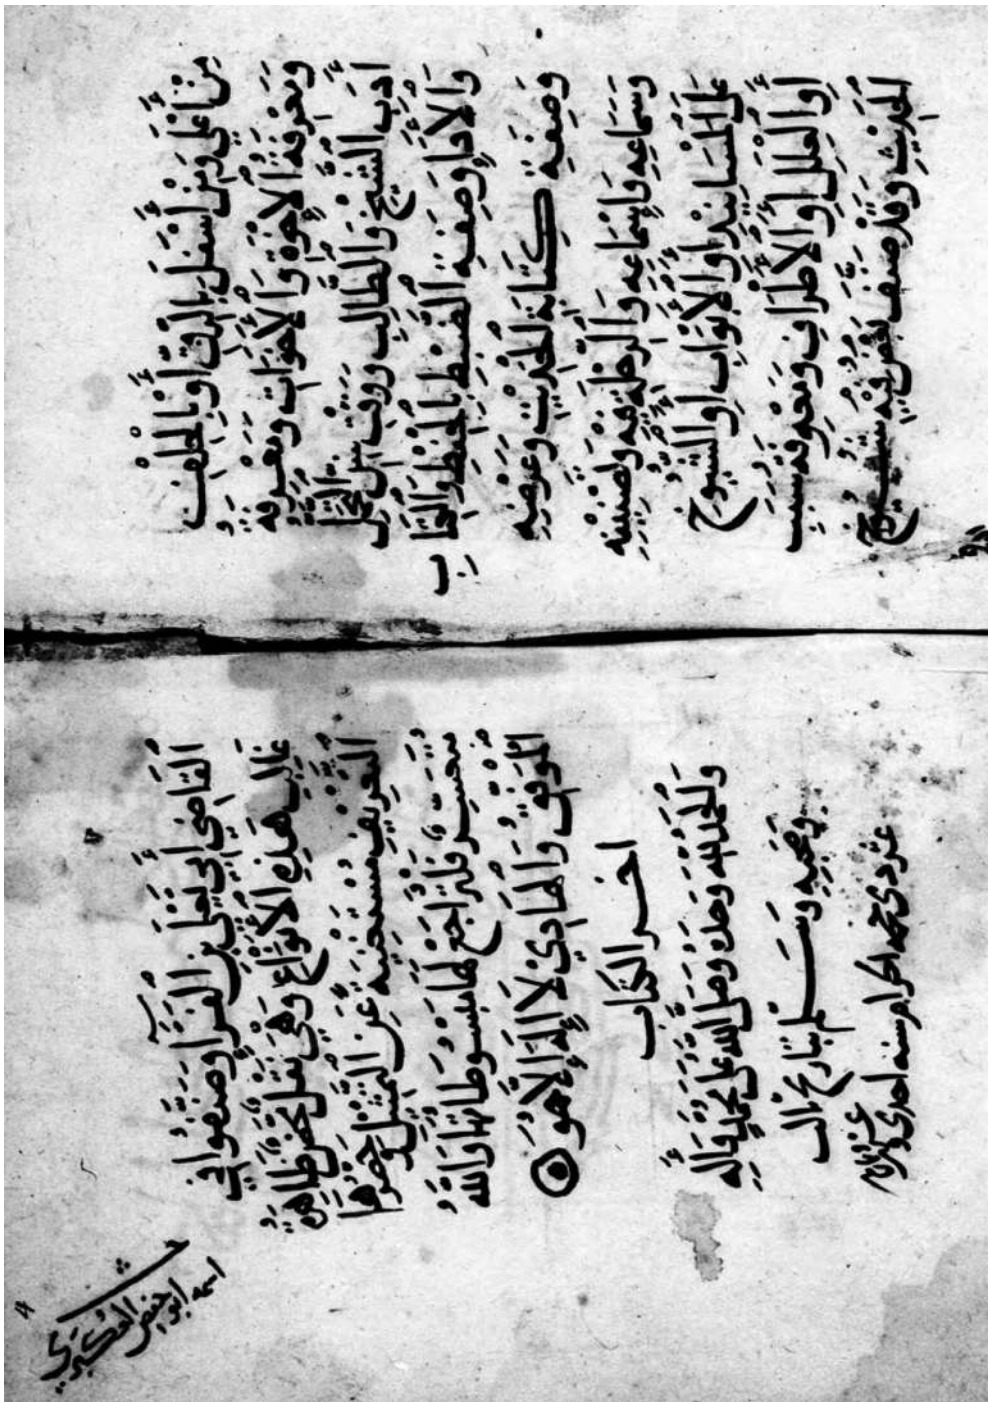 مِنْ أَعْلَى وَمِنْ أَسْفَلَ بِالرِّقِّ أَوْ بِالْحِلْفِ
وَمَعْرِفَةُ الْإِخْوَةِ وَالْأَخَوَاتِ وَمَعْرِفَةُ
أَدَبِ الشَّيْخِ وَالطَّالِبِ وَوَقْتِ سِنِّ التَّحَمُّلِ
وَالْأَدَاءِ وَصِفَةِ الضَّبْطِ بِالْحِفْظِ وَالْكِتَابِ
وَصِفَةِ كِتَابَةِ الْحَدِيثِ وَعَرْضِهِ
وَسَمَاعِهِ وَإِسْمَاعِهِ وَالرِّحْلَةِ فِيهِ وَتَصْنِيفِهِ
عَلَى الْمَسَانِيدِ أَوِ الْأَبْوَابِ أَوِ الشُّيُوخِ
أَوِ الْعِلَلِ أَوِ الْأَطْرَافِ وَمَعْرِفَةُ سَبَبِ
الْحَدِيثِ وَقَدْ صَنَّفَ فِيهِ بَعْضُ شُيُوخِ
الْقَاضِي أَبِي يَعْلَى بْنِ الْفَرَّاءِ وَصَنَّفُوا فِي
غَالِبِ هَذِهِ الْأَنْوَاعِ وَهِيَ نَقْلٌ مَحْضٌ ظَاهِرَةُ
التَّعْرِيفِ مُسْتَغْنِيَةٌ عَنِ التَّمْثِيلِ وَحَصْرُهَا
مُتَعَسِّرٌ فَلْتُرَاجَعْ لَهَا مَبْسُوطَاتُهَا وَاللَّهُ
الْمُوَفِّقُ وَالْهَادِي لَا إِلَهَ إِلَّا هُوَ
اخر الكتاب
وَالْحَمْدُ لِلَّهِ وَحْدَهُ وَصَلَّى اللَّهُ عَلَى مُحَمَّدٍ وَآلِهِ
وَصَحْبِهِ وَسَلَّمَ بتاريخ ثالث
عشر ذي حجة الحرام سنة احدى
اسمه
ابو حفص
العكبري